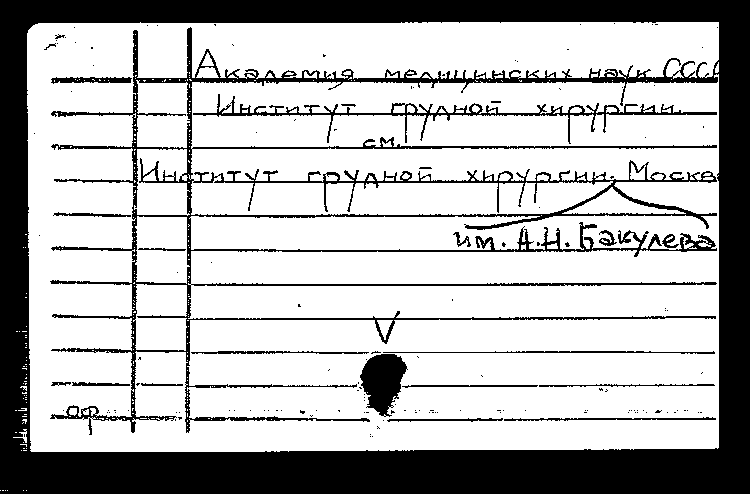 Академия медицинских наук СССР
Институт грудной хирургии.
см.
Институт грудной хирургии. Москва
им. А.Н. Бакулева
V
оф